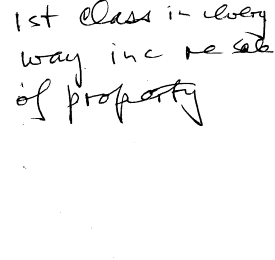 1st class in every
way inc re sale
of property